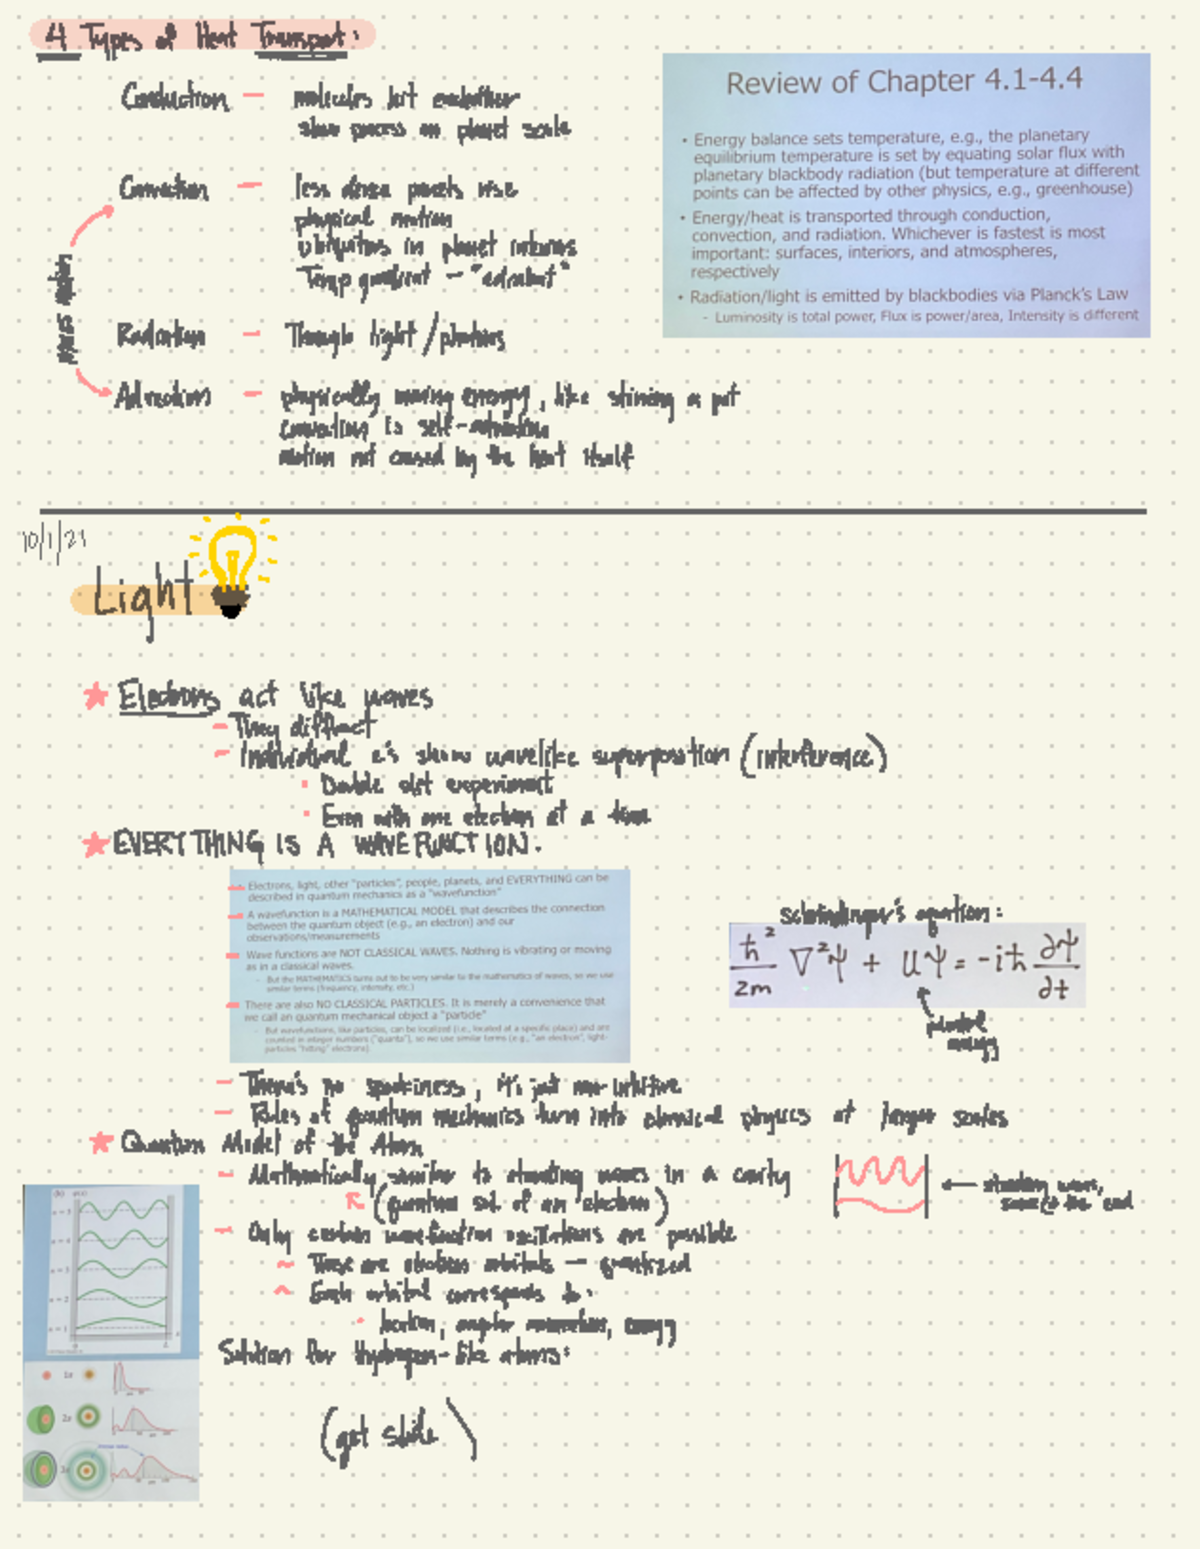 4 Types of Heat Transport:
Conduction — molecules hit eachother
slow process on planet scale
Convection — less dense parcels rise
physical motion
ubiquitous in planet interiors
Temp gradient — "adiabat"
Mass motion
Radiation — Through light/photons
Advection — physically moving energy, like stirring a pot
convection is self-advection
motion not caused by the heat itself
Review of Chapter 4.1-4.4
• Energy balance sets temperature, e.g., the planetary
equilibrium temperature is set by equating solar flux with
planetary blackbody radiation (but temperature at different
points can be affected by other physics, e.g., greenhouse)
• Energy/heat is transported through conduction,
convection, and radiation. Whichever is fastest is most
important: surfaces, interiors, and atmospheres,
respectively
• Radiation/light is emitted by blackbodies via Planck's Law
- Luminosity is total power, Flux is power/area, Intensity is different
10/1/21
Light
★ Electrons act like waves
- They diffract
- Individual e's show wavelike superposition (interference)
• Double slit experiment
• Even with one electron at a time
★ EVERYTHING IS A WAVEFUNCTION.
Electrons, light, other "particles", people, planets, and EVERYTHING can be
described in quantum mechanics as a "wavefunction"
A wavefunction is a MATHEMATICAL MODEL that describes the connection
between the quantum object (e.g., an electron) and our
observations/measurements
Wave functions are NOT CLASSICAL WAVES. Nothing is vibrating or moving
as in a classical waves.
- But the MATHEMATICS turns out to be very similar to the mathematics of waves, so we use
similar terms (frequency, intensity, etc.)
There are also NO CLASSICAL PARTICLES. It is merely a convenience that
we call an quantum mechanical object a "particle"
- But wavefunctions, like particles, can be localized (i.e., located at a specific place) and are
counted in integer numbers ("quanta"), so we use similar terms (e.g., "an electron", light-
particles "hitting" electrons).
Schrödinger's equation:
ħ²/2m ∇²ψ + Uψ = -iħ ∂ψ/∂t
potential
energy
- There's no spookiness, it's just non-intuitive
- Rules of quantum mechanics turn into classical physics at larger scales
★ Quantum Model of the Atom
- Mathematically similar to standing waves in a cavity
(quantum sol. of an electron)
← standing waves,
same @ the end
- Only certain wavefunction oscillations are possible
~ These are electron orbitals — quantized
~ Each orbital corresponds to:
• location, angular momentum, energy
Solution for Hydrogen-like atoms:
(get slide)
n = 5
n = 4
n = 3
n = 2
n = 1
1s
2s
3s